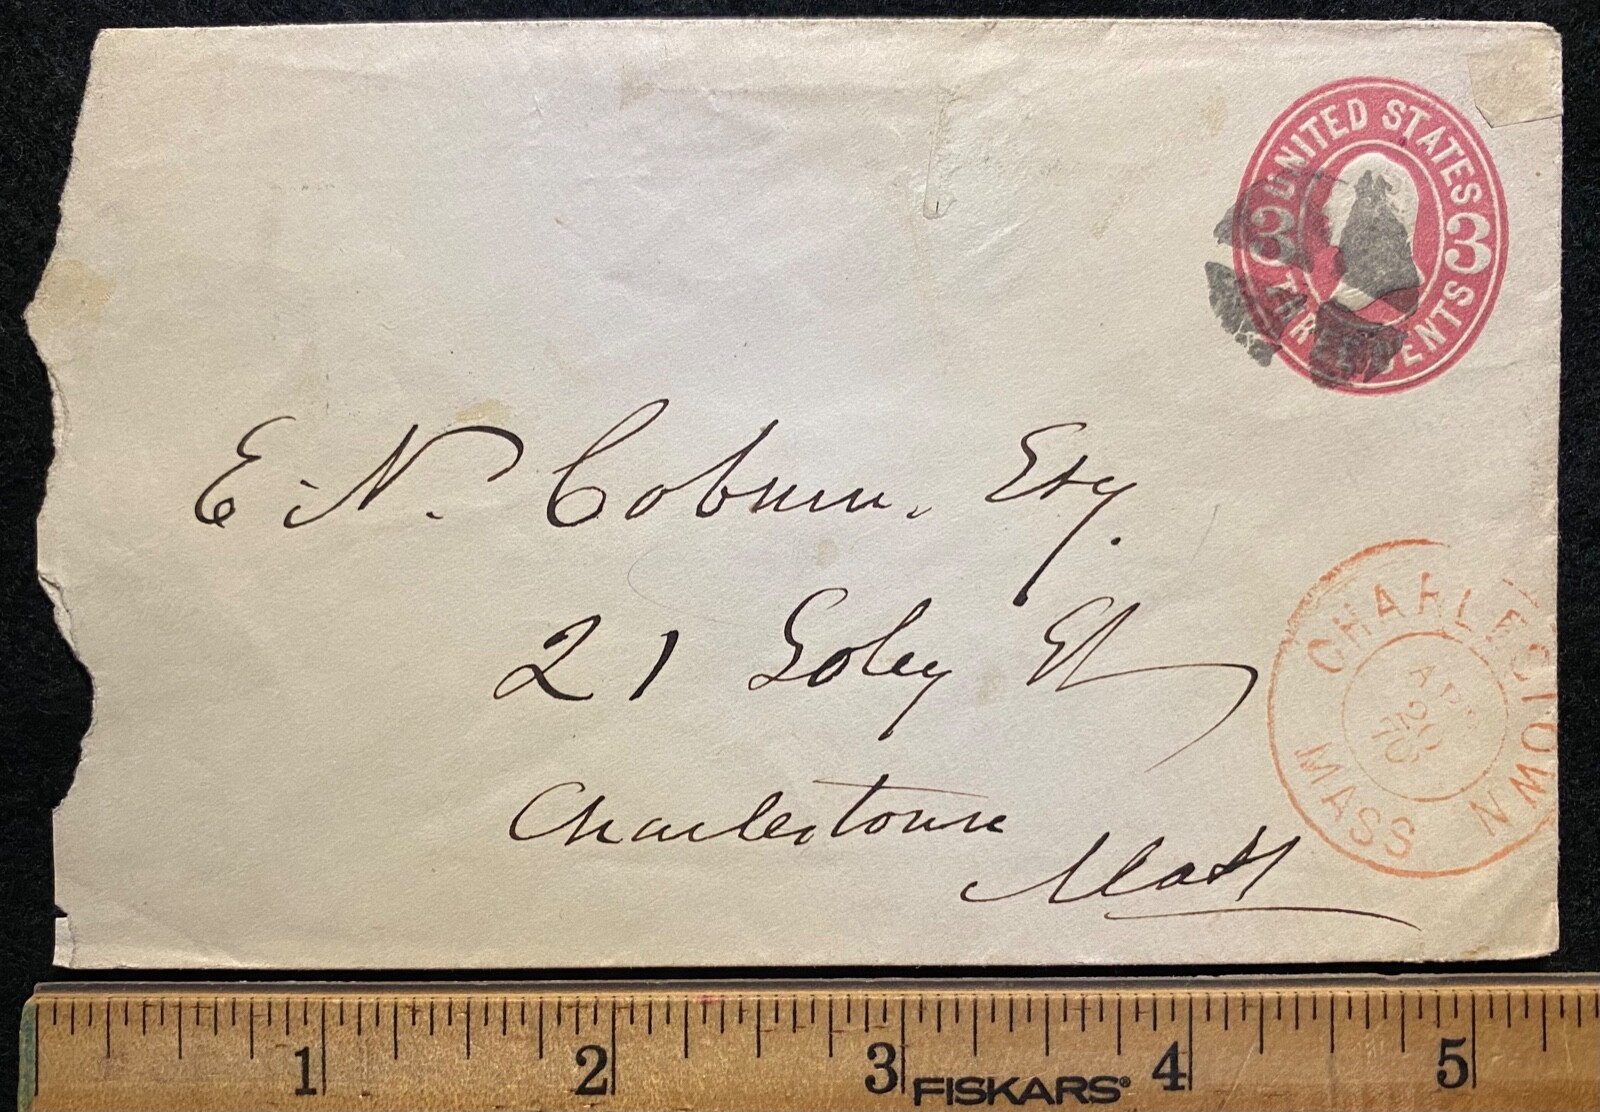 UNITED STATES
3 3
THREE CENTS
E. N. Coburn. Esq.
21 Soley St
Charlestown
Mass
CHARLESTOWN
APR
20
MASS
1 2 3 4 5
FISKARS®